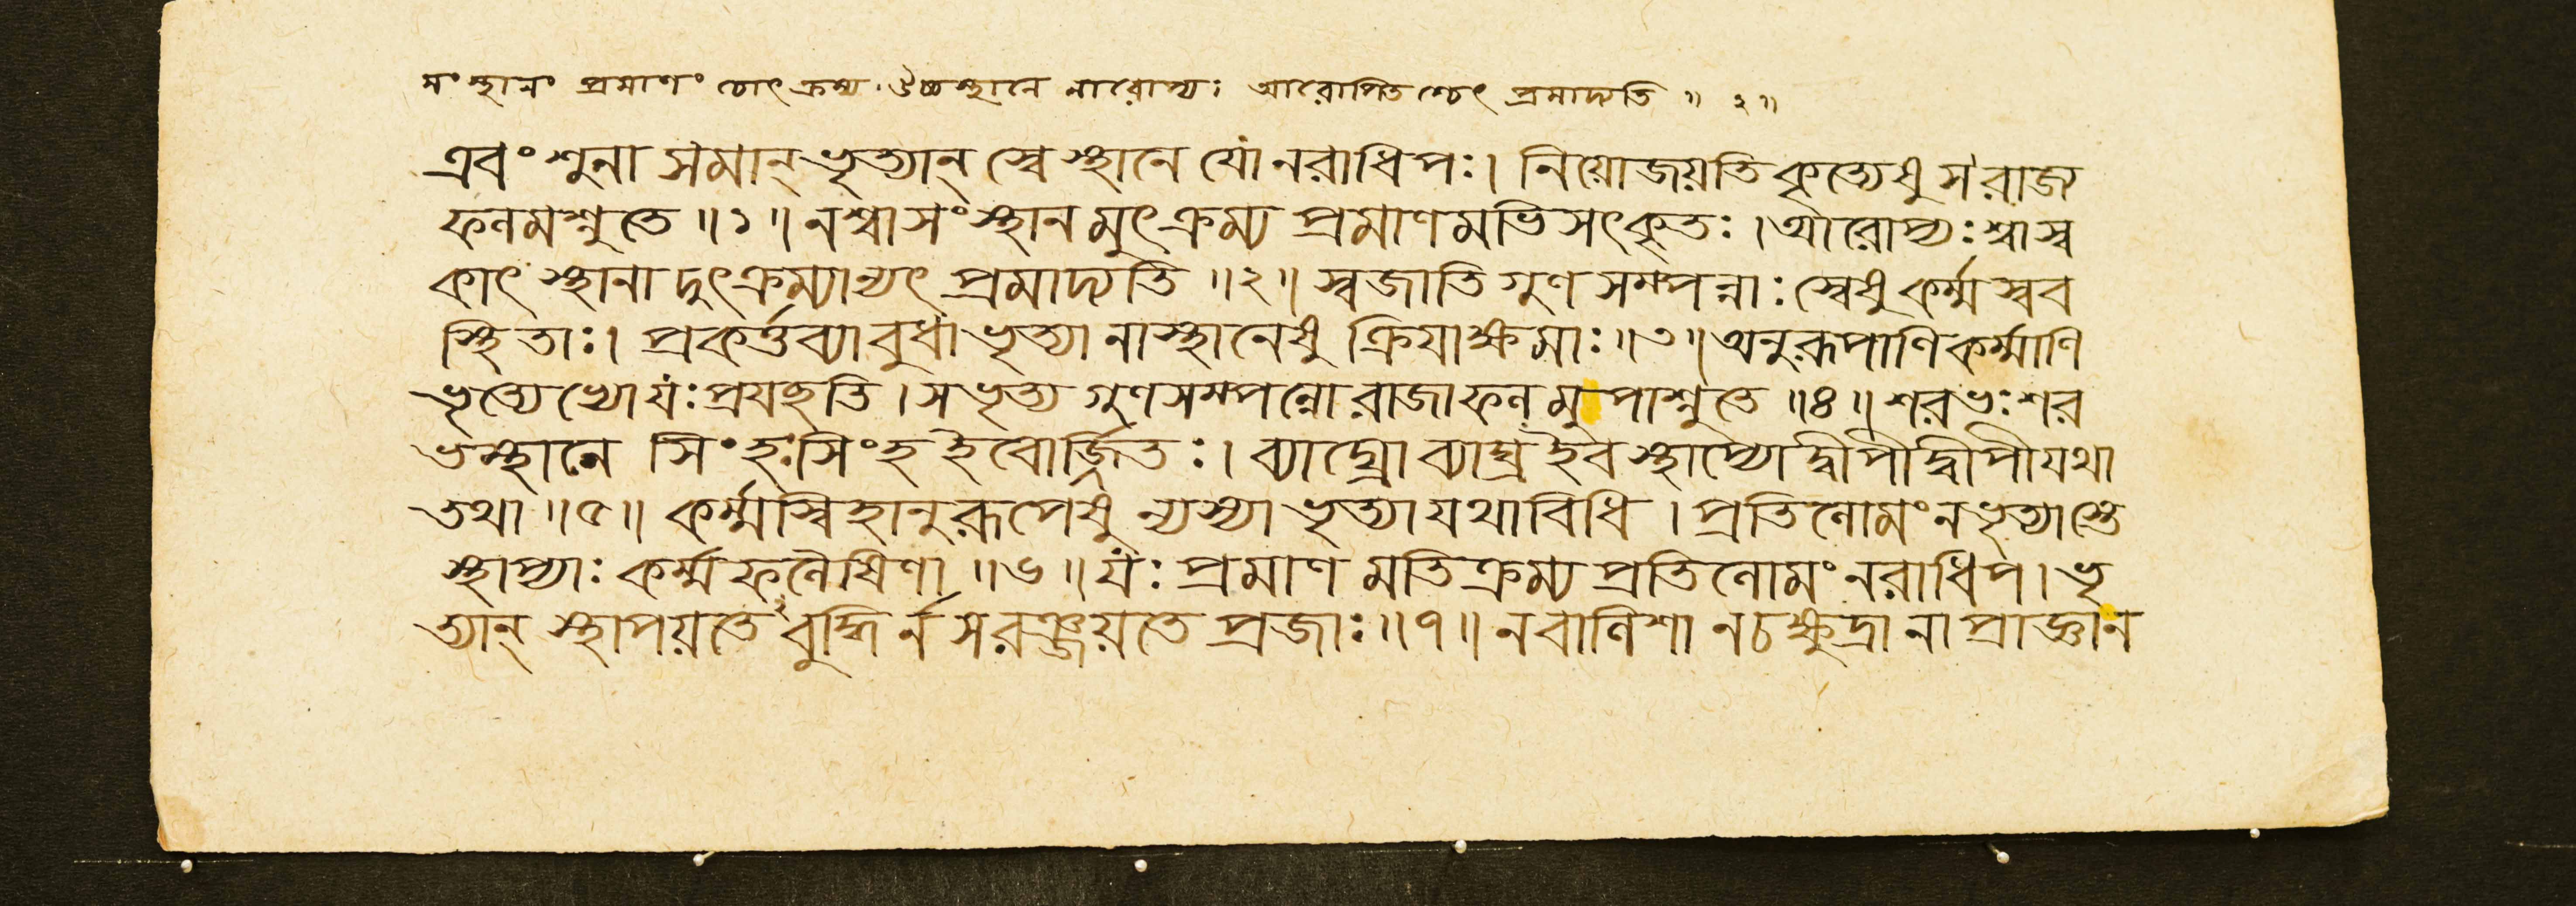 সংস্থানং প্রমাণং চোৎক্রম্য ঔচ্চস্থানে নারোপ্যঃ আরোপিতশ্চেৎ প্রমাদ্যতি ॥ ২॥
এবং শুনা সমান্ ভৃত্যান্ স্বে স্থানে যো নরাধিপঃ। নিয়োজয়তি কৃত্যেষু স রাজ্য
ফলমশ্নুতে ॥১॥ ন শ্বা সংস্থানমুৎক্রম্য প্রমাণমভিসৎকৃতঃ। আরোপ্যঃ শ্বা স্ব
কাৎ স্থানাদুৎক্রম্যান্যৎ প্রমাদ্যতি ॥২॥ স্বজাতিগুণসম্পন্নাঃ স্বেষু কর্ম্মস্বব
স্থিতাঃ। প্রকর্ত্তব্যা বুধা ভৃত্যা নাস্থানেষু ক্রিয়াক্ষমাঃ॥৩॥ অনুরূপাণি কর্ম্মাণি
ভৃত্যেভ্যো যঃ প্রযচ্ছতি। স ভৃত্যগুণসম্পন্নো রাজা ফলমুপাশ্নুতে ॥৪॥ শরভঃ শর
ভস্থানে সিংহঃ সিংহ ইবোর্জ্জিতঃ। ব্যাঘ্রো ব্যাঘ্র ইব স্থাপ্যো দ্বীপী দ্বীপী যথা
তথা ॥৫॥ কর্ম্মস্বিহানুরূপেষু ন্যস্যা ভৃত্যা যথাবিধি। প্রতিলোমং ন ভৃত্যাস্তে
স্থাপ্যাঃ কর্ম্মফলৈষিণা ॥৬॥ যঃ প্রমাণমতিক্রম্য প্রতিলোমং নরাধিপ। ভৃ
ত্যান্ স্থাপয়তেঽবুদ্ধির্ন স রঞ্জয়তে প্রজাঃ॥৭॥ ন বালিশা ন চ ক্ষুদ্রা নাপ্রাজ্ঞা ন